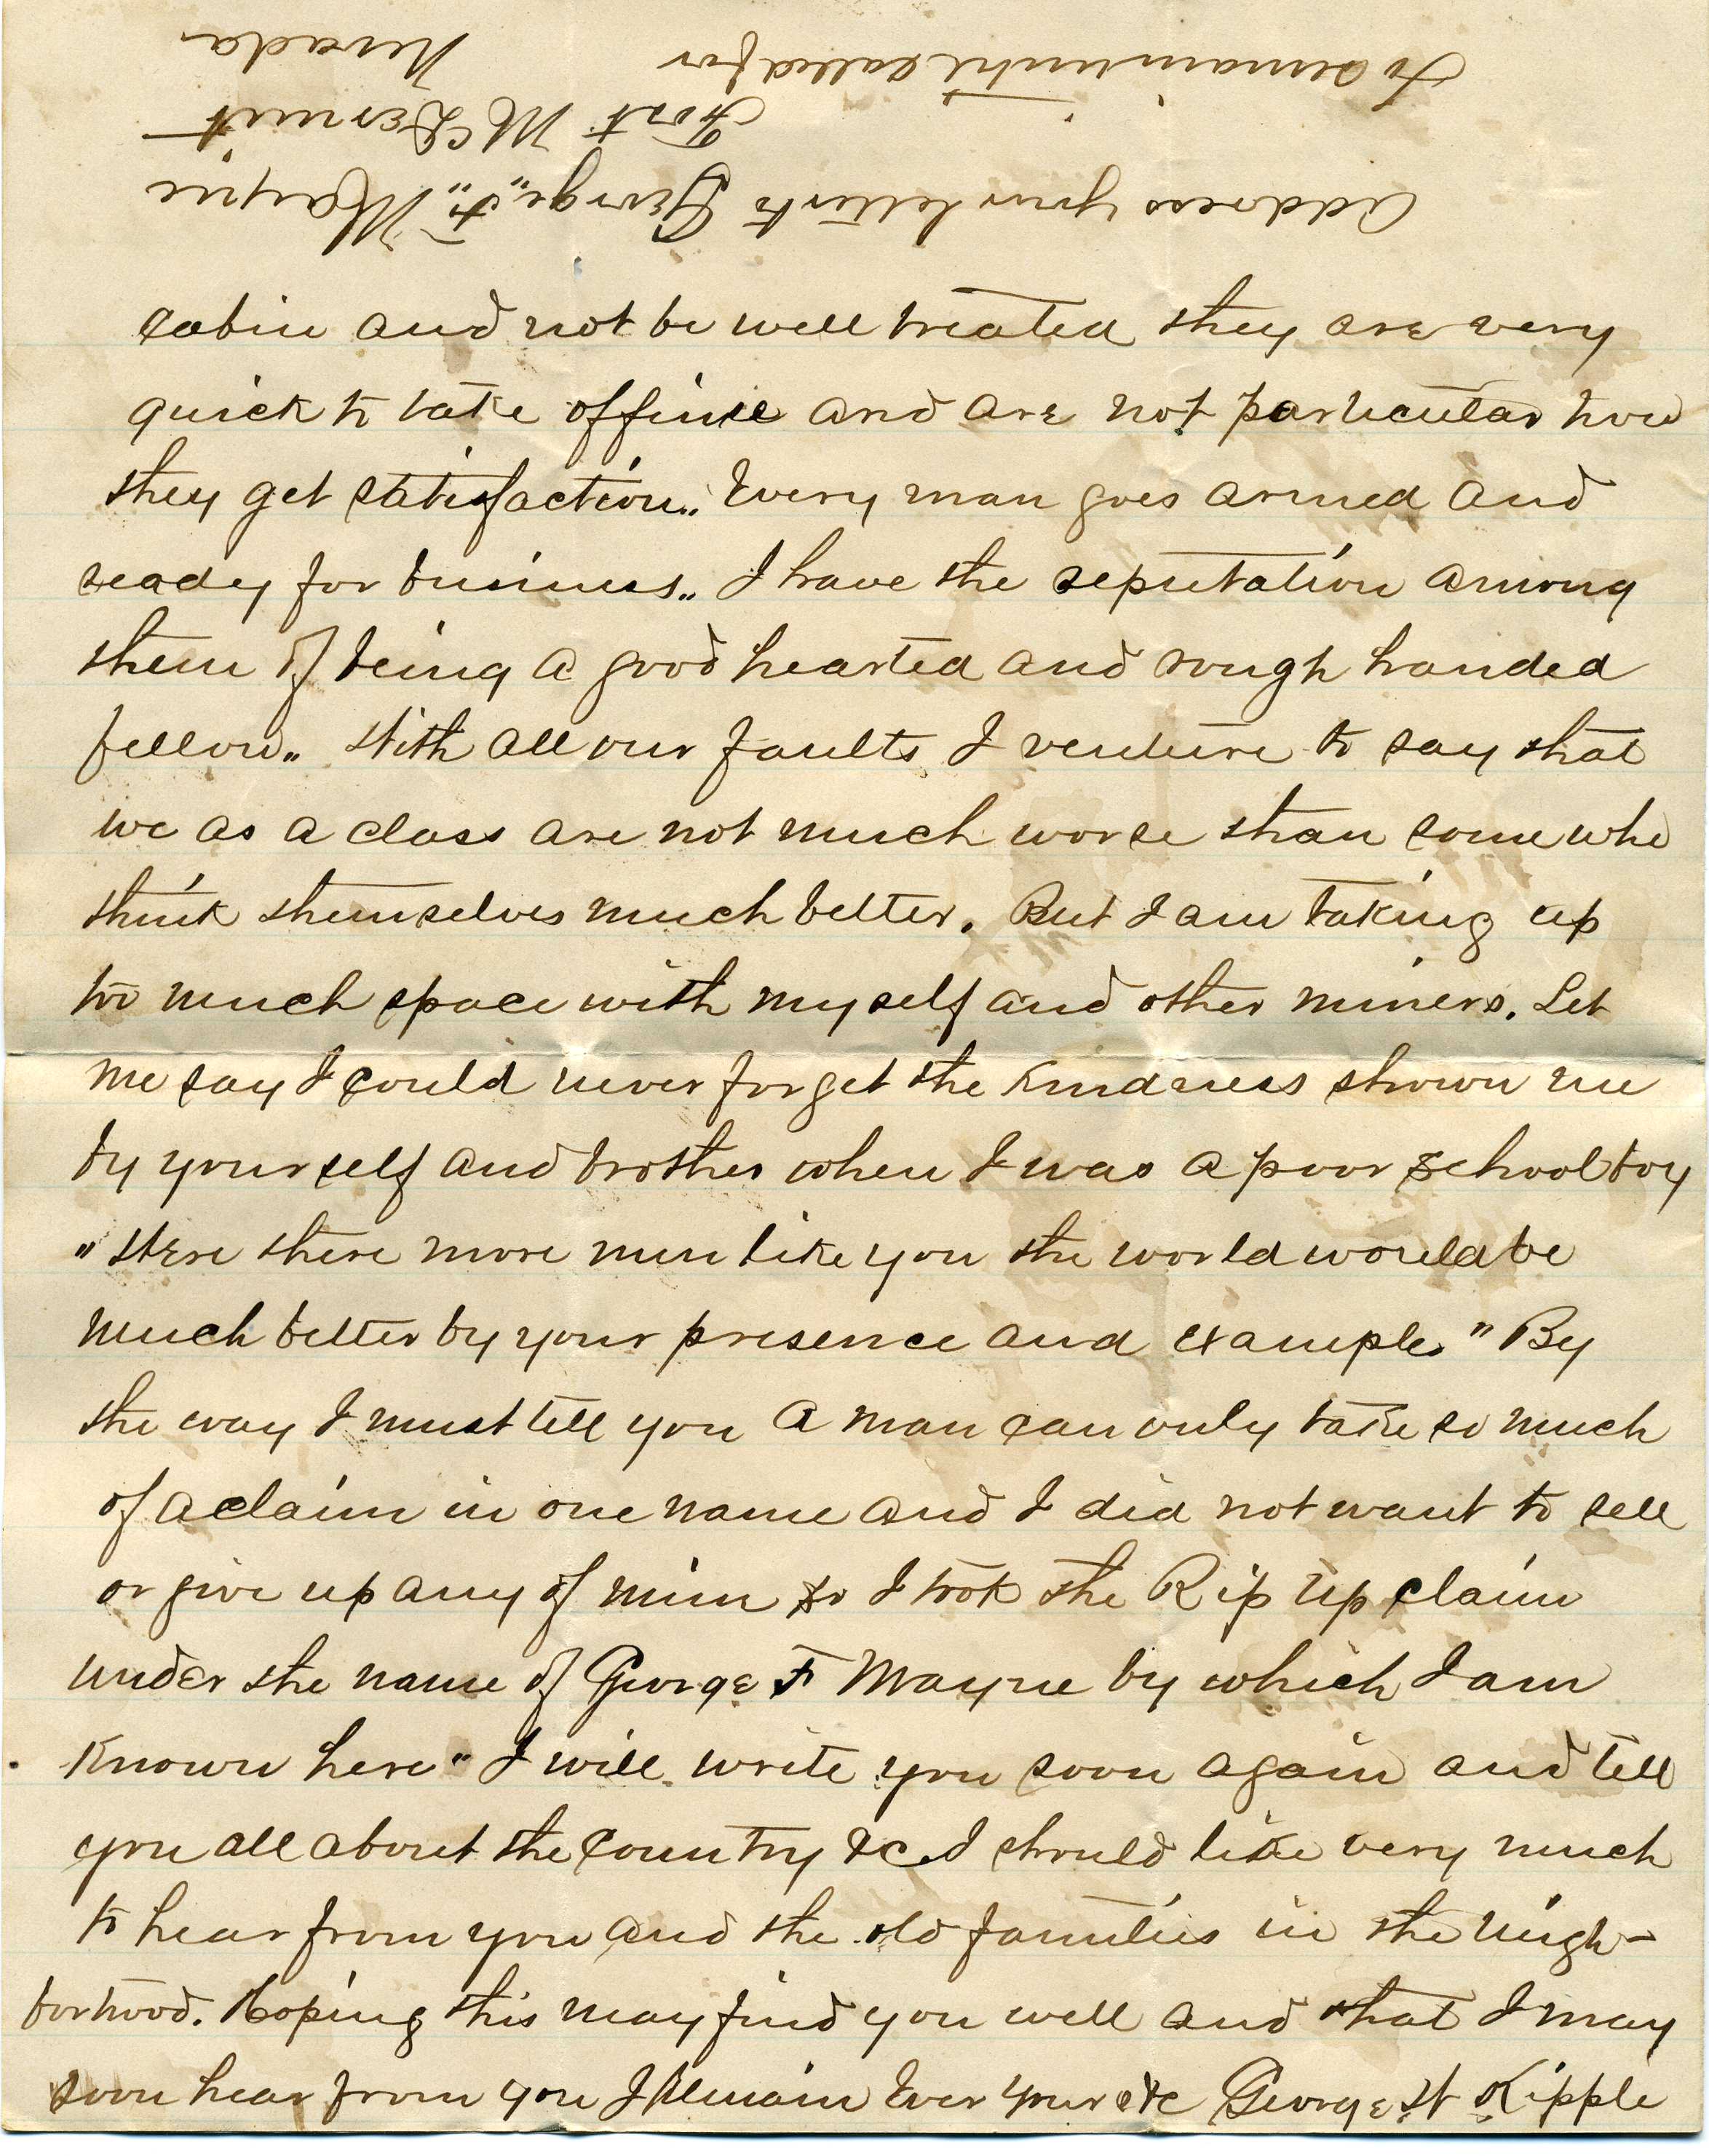 Address your letters George „F„ Mayne
Fort McDermit
Nevada
to remain until called for
cabin and not be well treated they are very
quick to take offince and are not particular how
they get satisfaction„ Every man goes armed and
ready for business„ I have the reputation among
them of being a good hearted and rough handed
fellow„ With all our faults I venture to say that
we as a class are not much worse than some who
think themselves much better. But I am taking up
too much space with myself and other miners. Let
me say I could never forget the kindness shown me
by yourself and brother when I was a poor school boy
„Were there more men like you the world would be
much better by your presence and example" By
the way I must tell you a man can only take so much
of a claim in one name and I did not want to sell
or give up any of mine so I took the Rip Up claim
under the name of George F Mayne by which I am
known here" I will write you soon again and tell
you all about the Country &c I should like very much
to hear from you and the old families in the neigh-
borhood. Hoping this may find you well and that I may
soon hear from you I Remain Ever Your &c George W Kipple